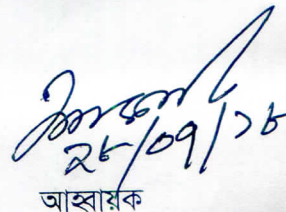 ২৮/০৭/১৮
আহ্বায়ক